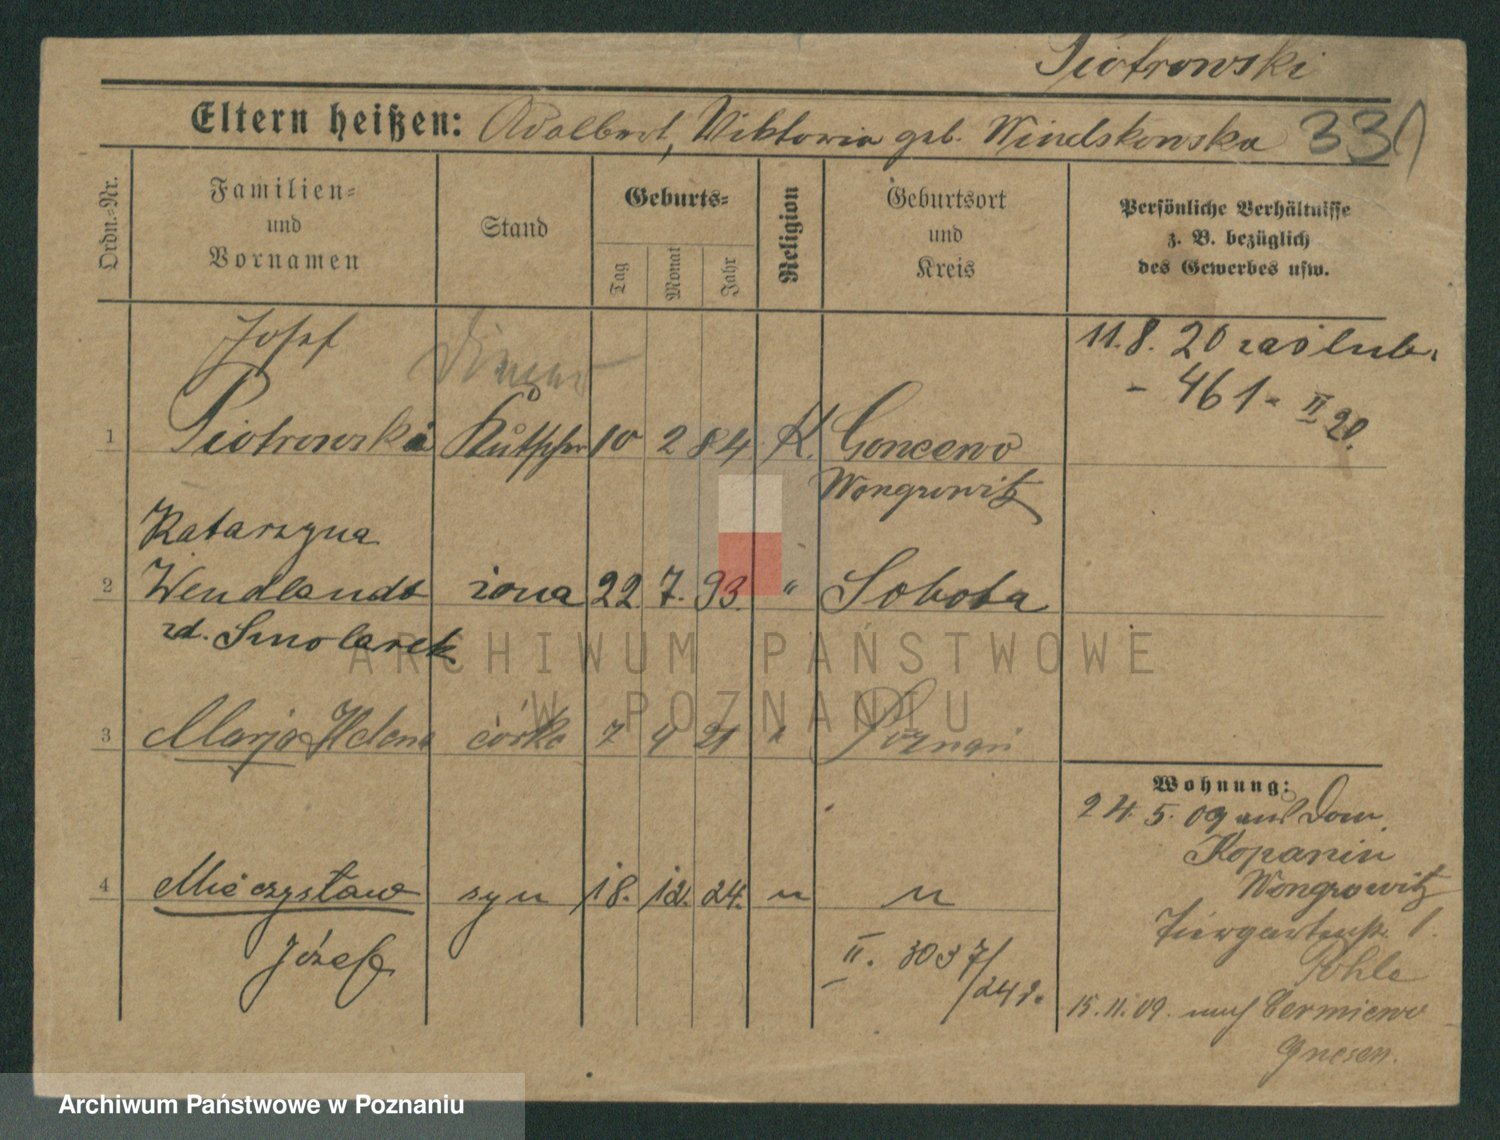 Piotrowski
Eltern heißen: Adalbert, Viktoria geb. Windskowska 331
Ordn.-Nr.
Familien-
und
Vornamen
Stand
Geburts-
Tag
Monat
Jahr
Religion
Geburtsort
und
Kreis
Persönliche Verhältnisse
z. B. bezüglich
des Gewerbes usw.
Josef
11.8.20 zaślub.
- 461 - II 20.
1 Piotrowski Kutscher 10 2 84 K. Goncewo
Wongrowitz
Katarzyna
2 Wendlandt żona 22. 7. 93. " Sobota
zd. Smolarek
ARCHIWUM PAŃSTWOWE
W POZNANIU
3 Marja Helena córka 7 4 21 " Poznań
Wohnung:
24. 5. 09 aus Dom.
Kopanin
Wongrowitz
4 Mieczysław syn 18. 12. 24. " "
Tiergartenstr. 1.
Józef
II. 3037/24 r.
Pohle
15.11.09. nach Czerniewo
Gnesen.
Archiwum Państwowe w Poznaniu